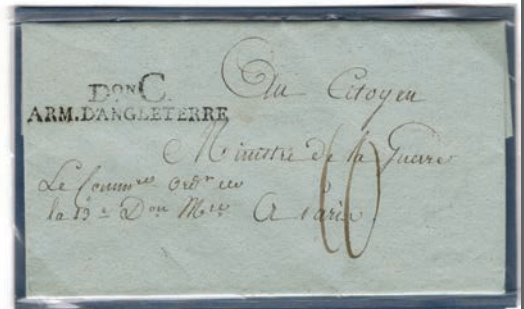 Don C.
ARM. D'ANGLETERRE
Au Citoyen
Ministre de la Guerre
A Paris
Le Commre Ordr de
la 13e Don Mre